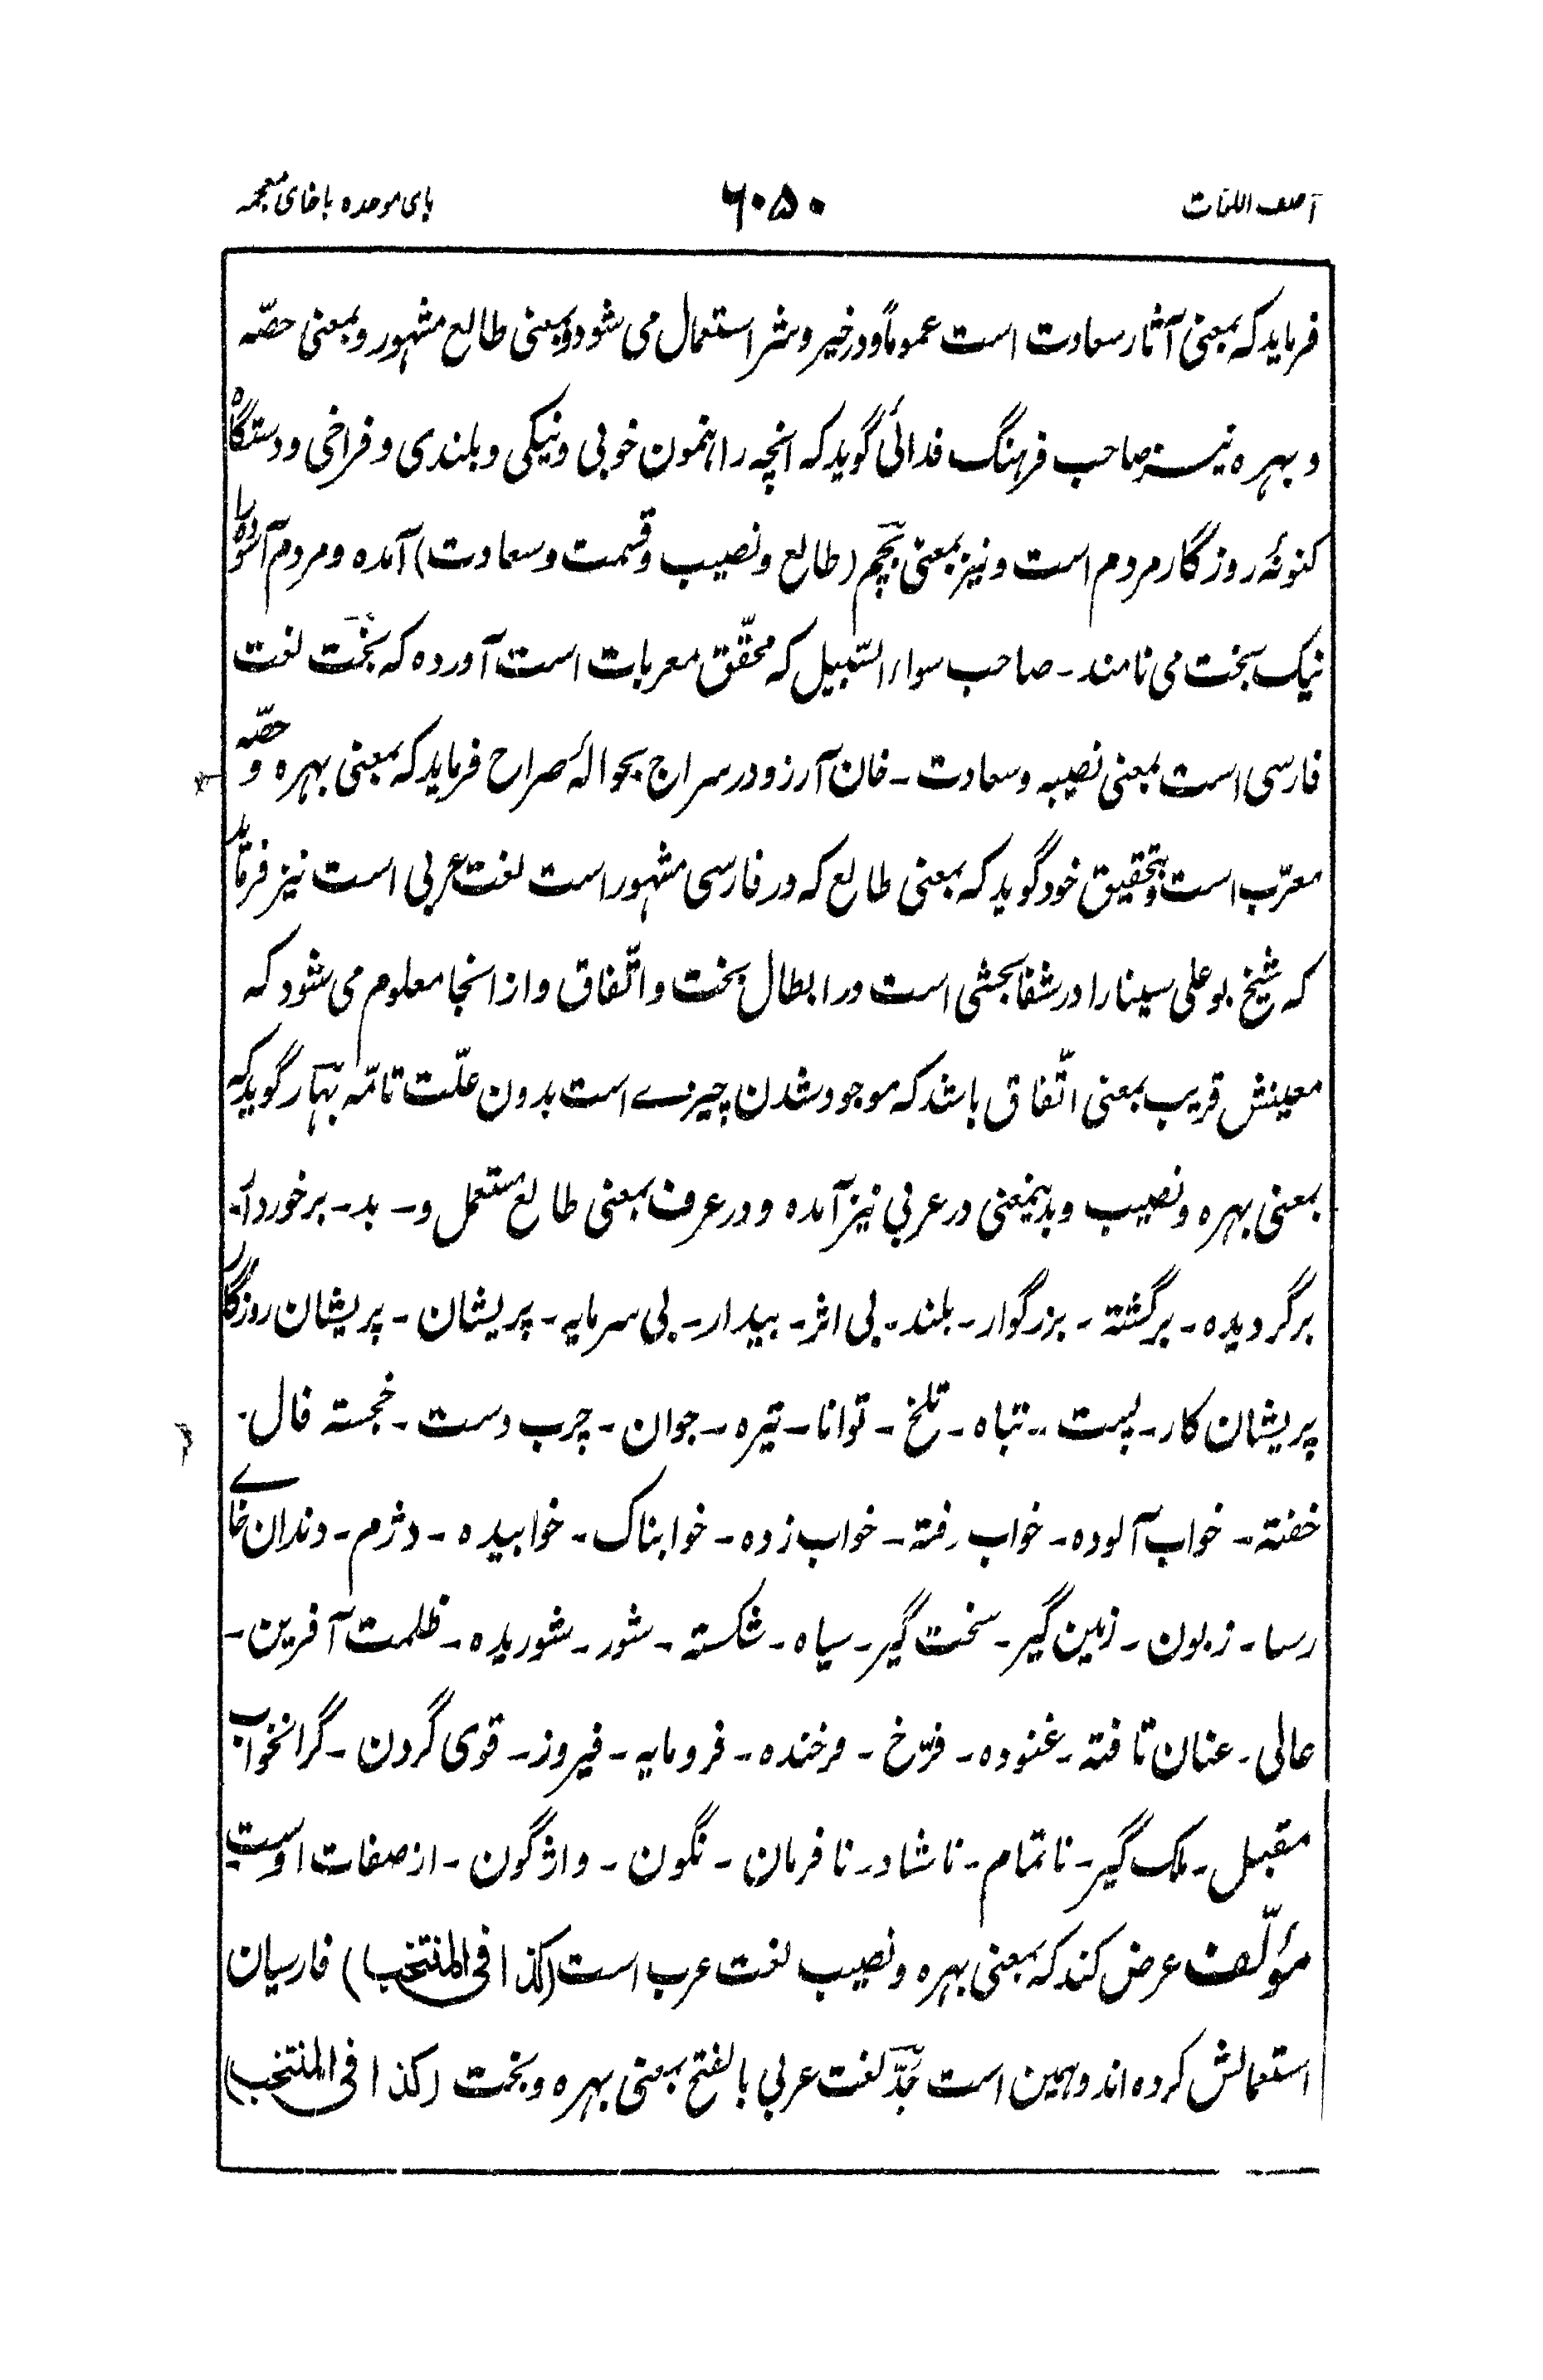 آصف اللغات ۶۰۵۰ بای موحده باخای معجمہ
فرماید که بمعنی آثار سعادت است عموماً و در خیر و شر استعمال می شود و بمعنی طالع مشہور و بمعنی حصّہ
و بهره نیست صاحب فرہنگ فدائی گوید که انچه راہنمون خوبی و نیکی و بلندی و فراخی و دستگاه
کنونۂ روزگار مردم است و نیز بمعنی بچم (طالع و نصیب و قسمت و سعادت) آمده و مردم آسوده را
نیک بخت می نامند ـ صاحب سواء السّبیل که محقّق معربات است آورده که بخت لغت
فارسی است بمعنی نصیبه و سعادت ـ خان آرزو در سراج بحوالۂ صراح فرماید که بمعنی بهره و حصّه
معرّب است و بتحقیق خود گوید که بمعنی طالع که در فارسی مشہور است لغت عربی است نیز فرماید
که شیخ بو علی سینا را در شفا بحثی است در ابطال بخت و اتّفاق و از انجا معلوم می شود که
معینش قریب بمعنی اتّفاق باشد که موجود شدن چیزے است بدون علّت تامّه بہار گوید که
بمعنی بهره و نصیب و بدینمعنی در عربی نیز آمده و در عرف بمعنی طالع مستعمل و ـ بد ـ برخوردار ـ
برگردیده ـ برگشتہ ـ بزرگوار ـ بلند ـ بی اثر ـ بیدار ـ بی سرمایه ـ پریشان ـ پریشان روزگار
پریشان کار ـ پست ـ تباه ـ تلخ ـ توانا ـ تیره ـ جوان ـ چرب دست ـ خجستہ فال ـ
خفتہ ـ خواب آلوده ـ خواب رفتہ ـ خواب زده ـ خوابناک ـ خوابیده ـ دژم ـ دندان خاے
رسا ـ زبون ـ زمین گیر ـ سخت گیر ـ سیاه ـ شکستہ ـ شور ـ شوریده ـ ظلمت آفرین ـ
عالی ـ عنان تافتہ ـ غنوده ـ فرّخ ـ فرخنده ـ فرومایه ـ فیروز ـ قوی گردن ـ گرانخواب
مقبل ـ ملک گیر ـ ناتمام ـ ناشاد ـ نافرمان ـ نگون ـ واژگون ـ از صفات اوست
مؤلّف عرض کند که بمعنی بهره و نصیب لغت عرب است (کذا فی المنتخب) فارسیان
استعمالش کرده اند و ہمین است جدّ لغت عربی بالفتح بمعنی بهره و بخت (کذا فی المنتخب)